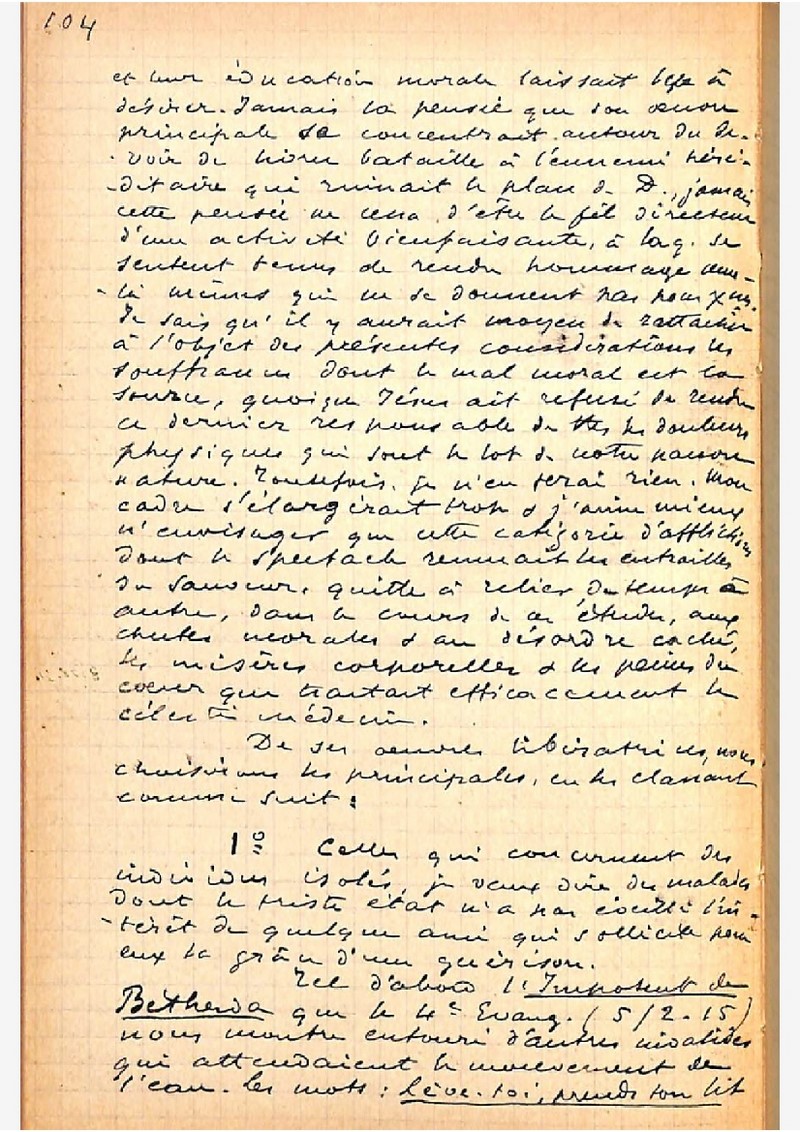 104
et leur éducation morale laissait bcp à
désirer. Jamais la pensée que son œuvre
principale se concentrait autour du de-
voir de livrer bataille à l'ennemi héré-
ditaire qui ruinait le plan de D., jamais
cette pensée ne cessa d'être le fil directeur
d'une activité bienfaisante, à laq. se
sentent tenus de rendre hommage ceux-
là mêmes qui ne se donnent pas pour
Je sais qu'il y aurait moyen de rattacher
à l'objet des présentes considérations les
souffrances dont le mal moral est la
source, quoique Jésus ait refusé de rendre
ce dernier responsable de ttes les douleurs
physiques qui sont le lot de notre pauvre
nature. Toutefois, je n'en ferai rien. Mon
cadre s'élargirait trop & j'aime mieux
n'envisager que cette catégorie d'afflictions
dont le spectacle remuait les entrailles
du Sauveur, quitte à relier, de temps à
autre, dans le cours de ces études, aux
chutes morales & au désordre caché,
les misères corporelles & les peines du
cœur que traitait efficacement le
céleste médecin.
De ses œuvres libératrices, nous
choisirons les principales, en les classant
comme suit :
1º Celles qui concernent des
individus isolés, je veux dire des malades
dont le triste état n'a pas éveillé l'in-
térêt de quelque ami qui sollicite pour
eux la grâce d'une guérison.
Tel d'abord l'Impotent de
Béthesda que le 4e Evang. (5/2-15)
nous montre entouré d'autres invalides
qui attendaient le mouvement de
l'eau. Les mots : Lève-toi, prends ton lit